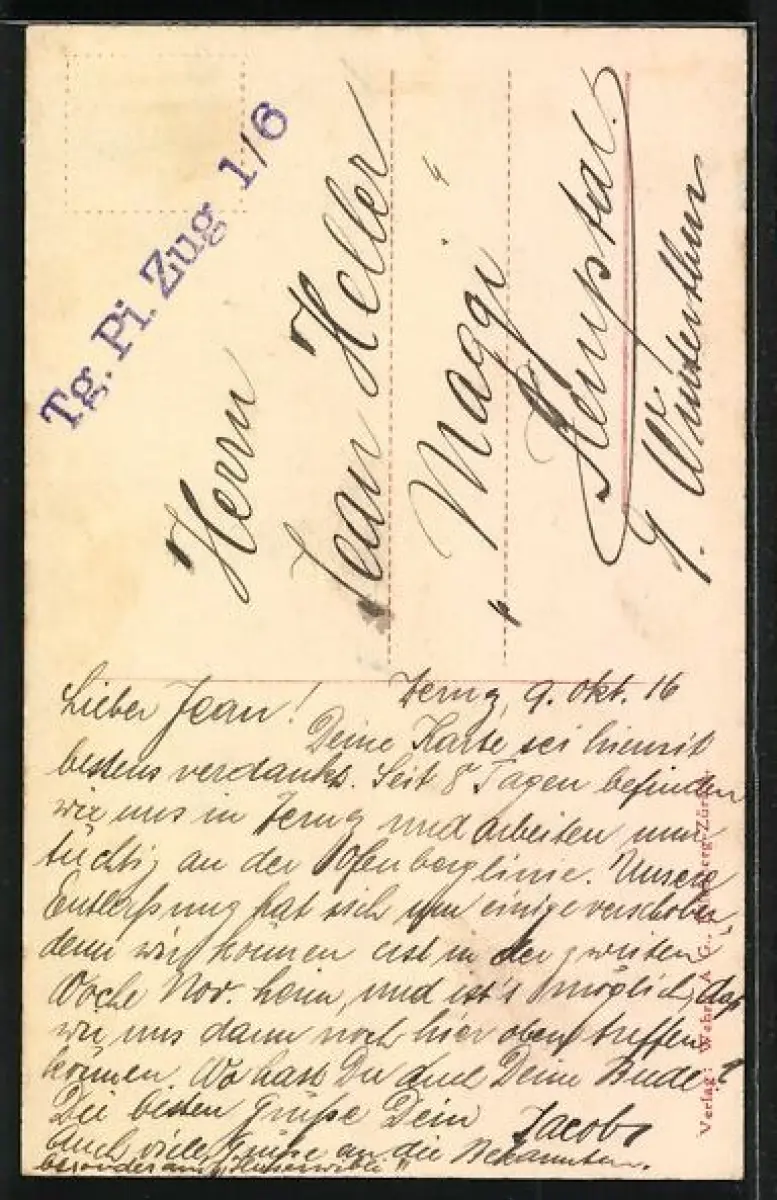 Tg. Pi. Zug 1/6
Herrn
Jean Heller
"Maggi"
Kemptal.
b/ Winterthur
Lieber Jean! Zernez, 9. Okt. 16
Deine Karte sei hiemit
bestens verdankt. Seit 8 Tagen befinden
wir uns in Zernez und arbeiten nun
tüchtig an der Ofenberglinie. Unsere
Entlaßung hat sich um einige verschoben,
denn wir können erst in der zweiten
Woche Nov. heim, und ist's möglich, daß
wir uns dann noch hier oben treffen
können. Wo hast Du denn Deine Bude?
Die besten Grüße Dein Jacob
Auch viele Grüße an die Bekannten.
besonders an
Verlag: Wehrli A.G., Kilchberg-Zürich.